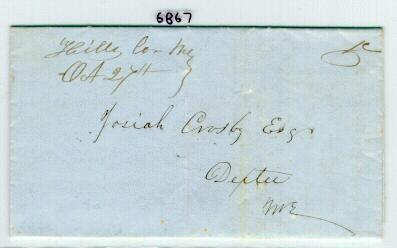 6867
Hills Cor Me
Oct 27th
5c
Josiah Crosby Esqr
Dexter
Me